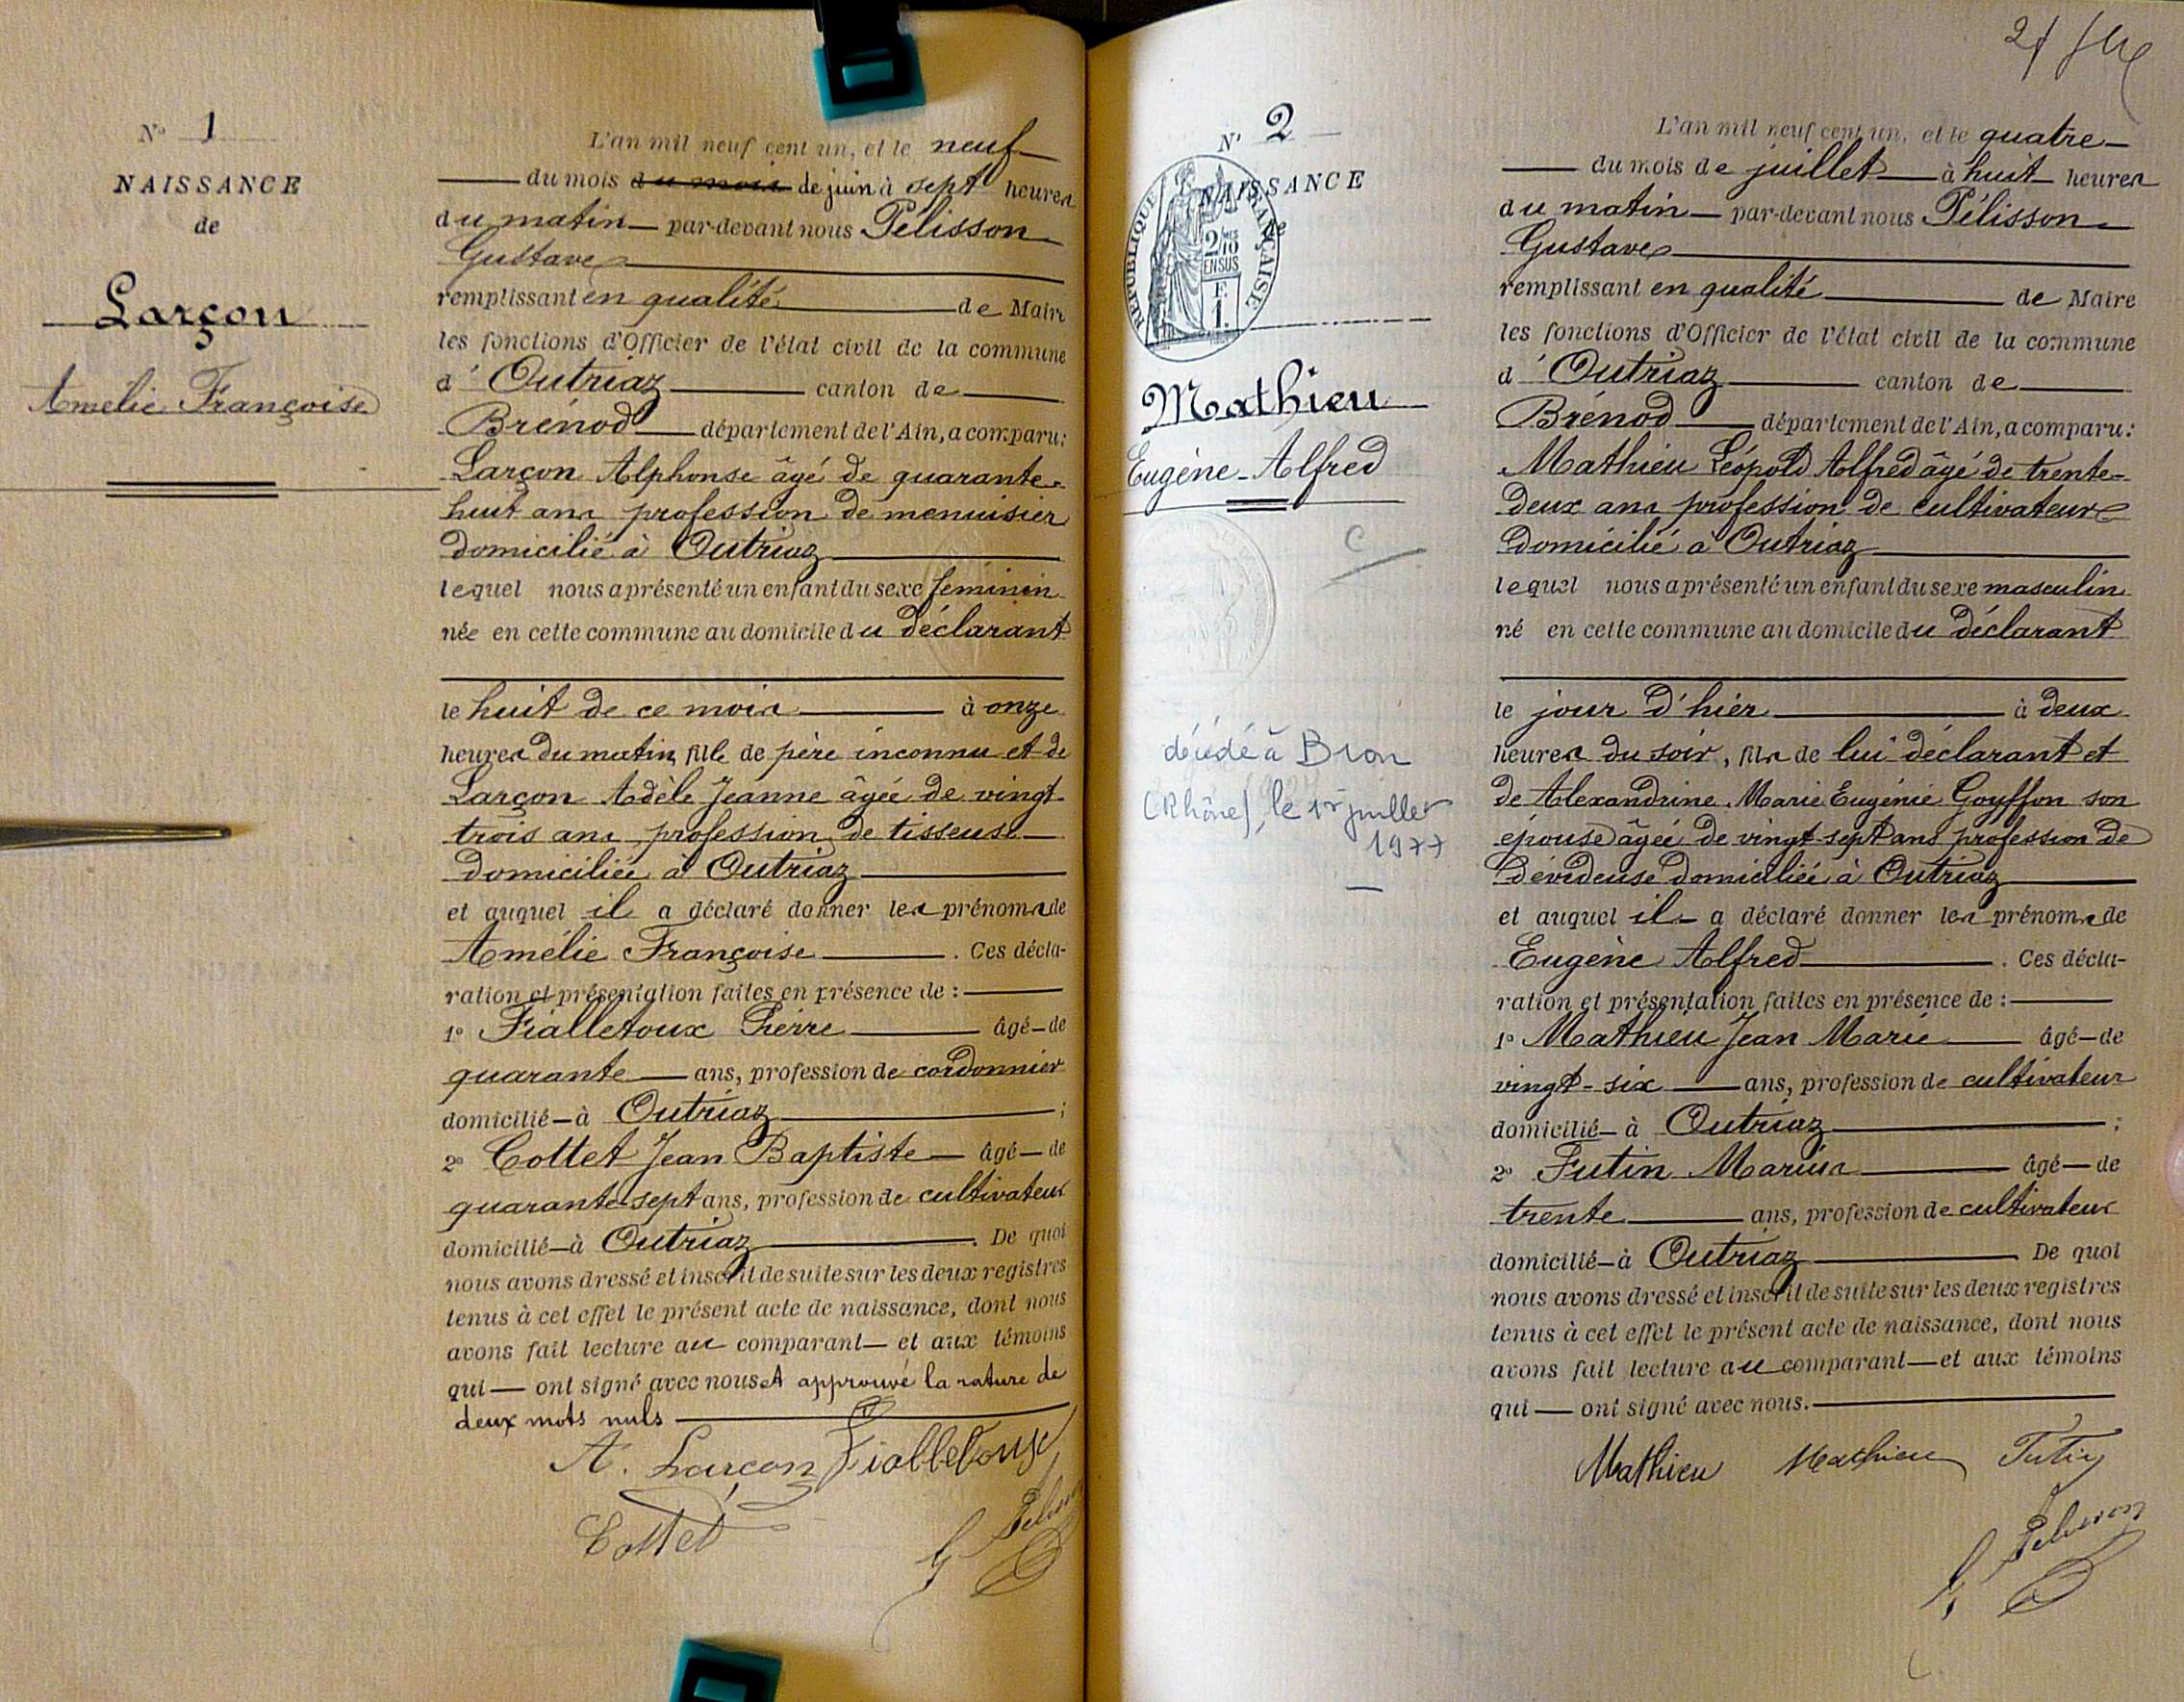 N° 1
NAISSANCE
de
Larçon
Amélie Françoise
L'an mil neuf cent un, et le neuf
du mois du mois de juin à sept heures
du matin par-devant nous Pélisson
Gustave
remplissant en qualité de Maire
les fonctions d'Officier de l'état civil de la commune
d' Outriaz canton de
Brénod département de l'Ain, a comparu:
Larçon Alphonse âgé de quarante-
huit ans profession de menuisier
domicilié à Outriaz
lequel nous a présenté un enfant du sexe féminin
née en cette commune au domicile du déclarant
le huit de ce mois à onze
heures du matin, fille de père inconnu et de
Larçon Adèle Jeanne âgée de vingt-
trois ans, profession de tisseuse
domiciliée à Outriaz
et auquel il a déclaré donner les prénoms de
Amélie Françoise . Ces décla-
ration et présentation faites en présence de :
1° Fialletoux Pierre âgé de
quarante ans, profession de cordonnier
domicilié à Outriaz ;
2° Cottet Jean Baptiste âgé de
quarante-sept ans, profession de cultivateur
domicilié à Outriaz . De quoi
nous avons dressé et inscrit de suite sur les deux registres
tenus à cet effet le présent acte de naissance, dont nous
avons fait lecture au comparant et aux témoins
qui ont signé avec nous et approuvé la rature de
deux mots nuls
A. Larçon Fialletoux
Cottet G Pélisson
N° 2
NAISSANCE
de
RÉPUBLIQUE FRANÇAISE
2/10 MES
EN SUS
F.
1.
Mathieu
Eugène-Alfred
C
décédé à Bron
(Rhône), le 1er juillet
1977
L'an mil neuf cent un, et le quatre
du mois de juillet à huit heures
du matin par-devant nous Pélisson
Gustave
remplissant en qualité de Maire
les fonctions d'Officier de l'état civil de la commune
d' Outriaz canton de
Brénod département de l'Ain, a comparu:
Mathieu Léopold Alfred âgé de trente-
deux ans profession de cultivateur
domicilié à Outriaz
lequel nous a présenté un enfant du sexe masculin
né en cette commune au domicile du déclarant
le jour d'hier à deux
heures du soir, fils de lui déclarant et
de Alexandrine Marie Eugénie Goyffon son
épouse âgée de vingt-sept ans profession de
dévideuse domiciliée à Outriaz
et auquel il a déclaré donner les prénoms de
Eugène Alfred . Ces décla-
ration et présentation faites en présence de :
1° Mathieu Jean Marie âgé de
vingt-six ans, profession de cultivateur
domicilié à Outriaz ;
2° Futin Marius âgé de
trente ans, profession de cultivateur
domicilié à Outriaz De quoi
nous avons dressé et inscrit de suite sur les deux registres
tenus à cet effet le présent acte de naissance, dont nous
avons fait lecture au comparant et aux témoins
qui ont signé avec nous.
Mathieu Mathieu Futin
G Pélisson